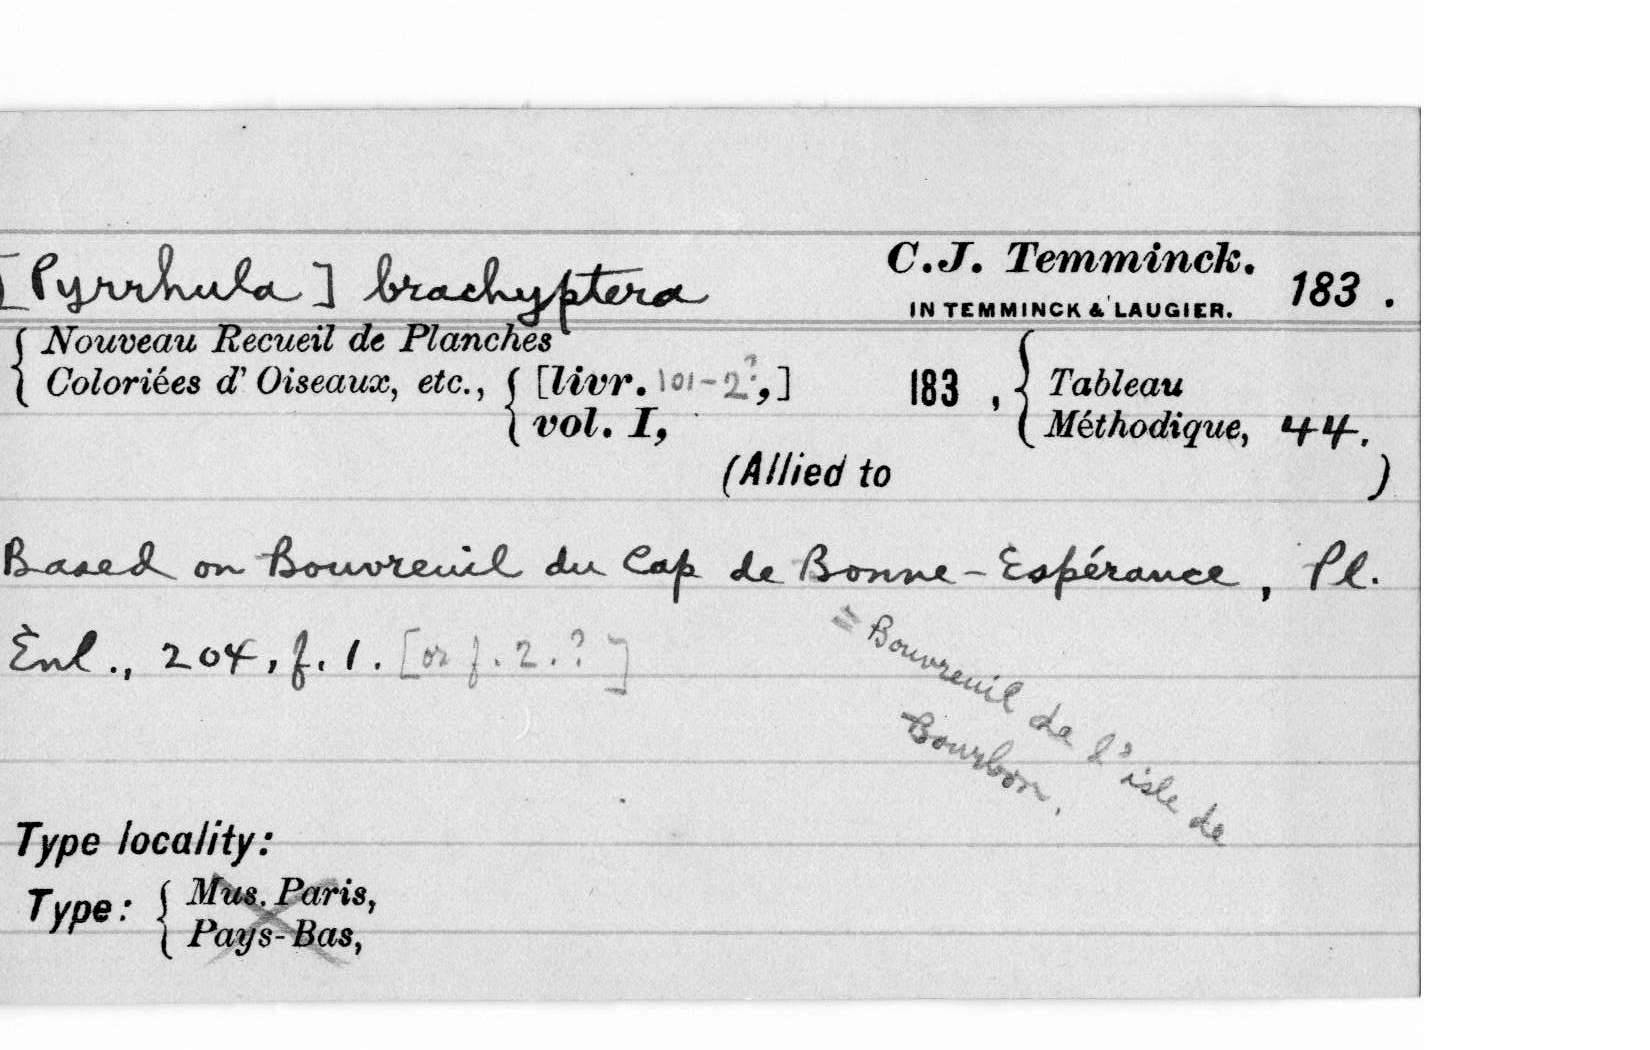 [Pyrrhula] brachyptera C.J. Temminck. 183.
IN TEMMINCK & LAUGIER.
{ Nouveau Recueil de Planches
Coloriées d' Oiseaux, etc., { [livr. 101-2?,] 183, { Tableau
vol. I, Méthodique, 44.
(Allied to )
Based on Bouvreuil du Cap de Bonne-Espérance, Pl.
Enl., 204, f. 1. [or f. 2.?]
= Bouvreuil de l'isle de
Bourbon.
Type locality:
Type: { Mus. Paris,
Pays-Bas,